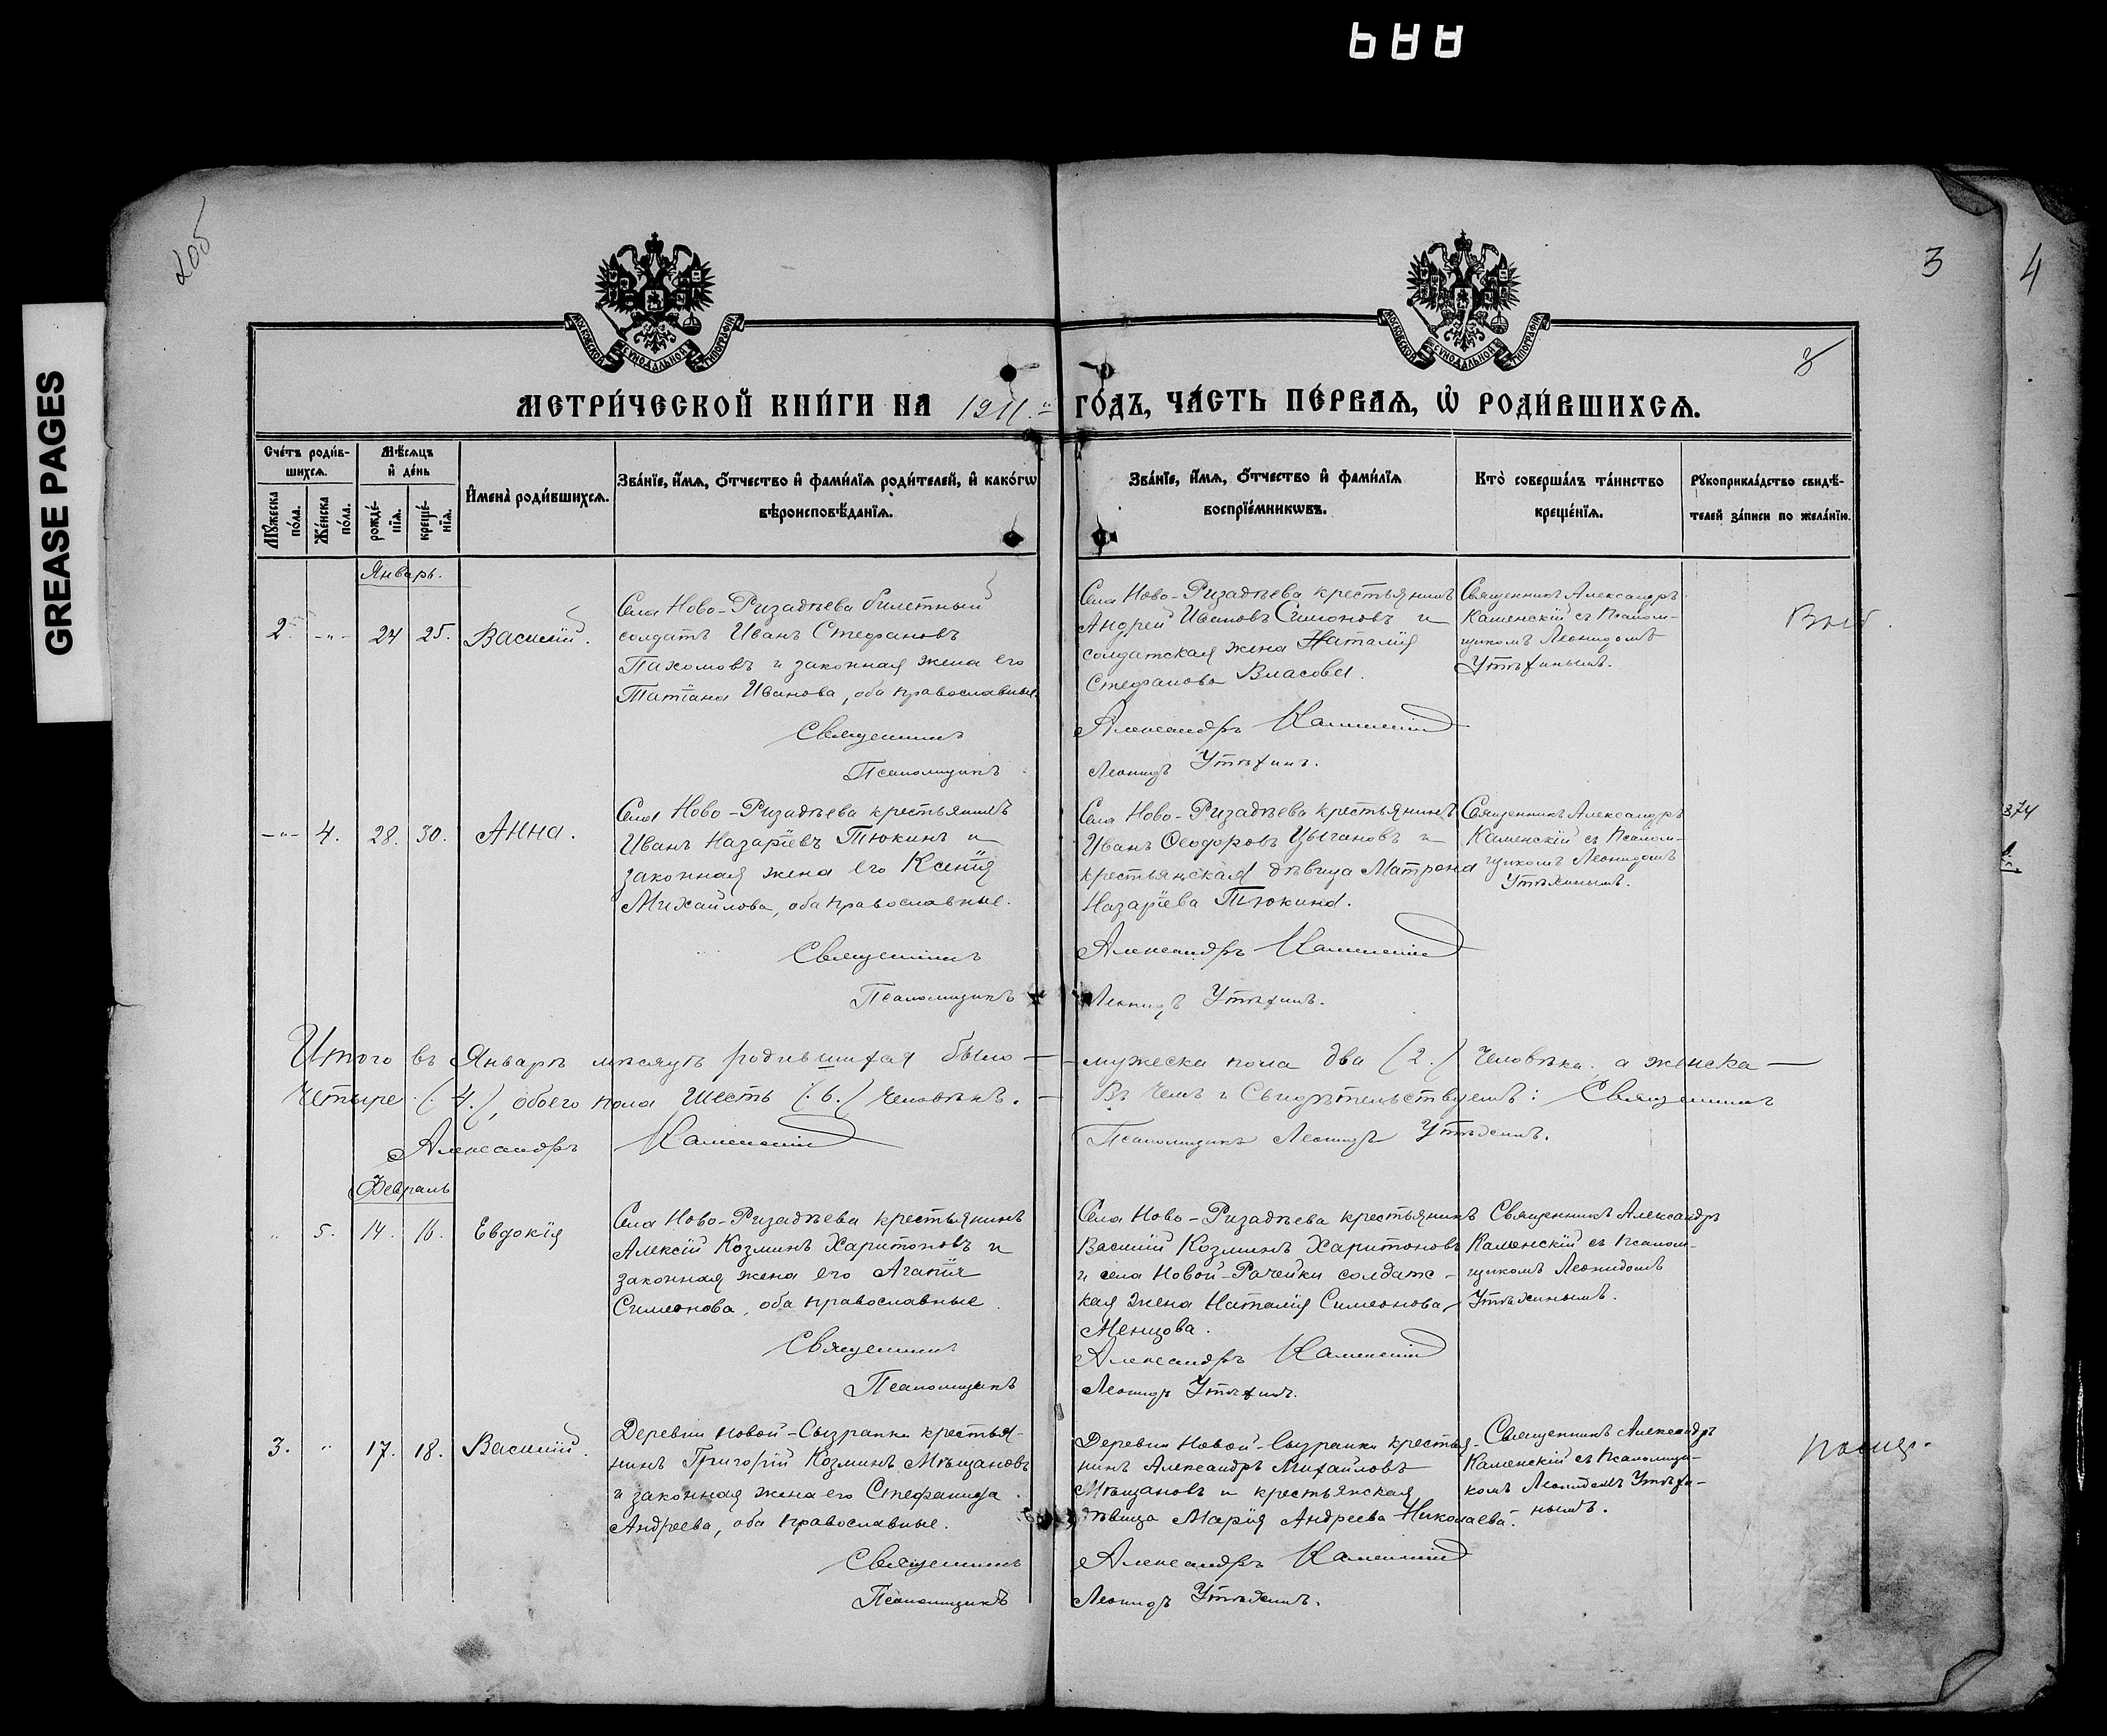 GREASE PAGES
205
3
4
3
МОСКОВСКОЙ СѴНОДАЛЬНОЙ ТИПОГРАФІИ
МОСКОВСКОЙ СѴНОДАЛЬНОЙ ТИПОГРАФІИ
МЕТРИ́ЧЕСКОЙ КНИ́ГИ НА 1911.й ГО́ДЪ, ЧА́СТЬ ПЕ́РВАЯ, Ѡ҆ РОДИ́ВШИХСЯ.
Сче́тъ роди́в-
шихся.
Мꙋ́жеска по́ла.
Же́нска по́ла.
Мѣ́сяцъ
и҆ де́нь
рожде́-
нїя.
креще́-
нїя.
И҆мена̀ роди́вшихся.
Зва́нїе, и҆́мя, ѻ҆́тчество и҆ фами́лїя роди́телей, и҆ како́гѡ
вѣроисповѣ́данїя.
Зва́нїе, и҆́мя, ѻ҆́тчество и҆ фами́лїя
воспрїе́мникѡвъ.
Кто̀ соверша́лъ та́инство
креще́нїя.
Рꙋкоприкла́дство свидѣ́-
телей за́писи по жела́нїю.
Январь.
2. -"- 24 25. Василій.
Села Ново-Ризадѣева билетный
солдатъ Иванъ Стефановъ
Пахомовъ и законная жена его
Татіана Иванова, оба православные
Села Ново-Ризадѣева крестьянинъ
Андрей Ивановъ Симоновъ и
солдатская жена Наталія
Стефанова Власова.
Священникъ Александръ
Каменскій съ Псалом-
щикомъ Леонидомъ
Утѣхинымъ.
Священникъ Александръ Каменскій
Псаломщикъ Леонидъ Утѣхинъ.
-"- 4. 28. 30. Анна.
Села Ново-Ризадѣева крестьянинъ
Иванъ Назаріевъ Тюкинъ и
законная жена его Ксенія
Михайлова, оба православные.
Села Ново-Ризадѣева крестьянинъ
Иванъ Ѳеодоровъ Цыгановъ и
крестьянская дѣвица Матрона
Назаріева Тюкина.
Священникъ Александръ
Каменскій съ Псалом-
щикомъ Леонидомъ
Утѣхинымъ.
374
Священникъ Александръ Каменскій
Псаломщикъ Леонидъ Утѣхинъ.
Итого въ Январѣ мѣсяцѣ родившихся было — мужеска пола два (2.) человѣка, а женска —
четыре (:4.), обоего пола шесть (:6.) человѣкъ. — Въ чемъ и свидѣтельствуемъ: Священникъ
Александръ Каменскій Псаломщикъ Леонидъ Утѣхинъ.
Февраль
" 5. 14. 16. Евдокія
Села Ново-Ризадѣева крестьянинъ
Алексій Козминъ Харитоновъ и
законная жена его Агапія
Симеонова, оба православные.
Села Ново-Ризадѣева крестьянинъ
Василій Козминъ Харитоновъ
и села Новой-Рачейки солдатс-
кая жена Наталія Симеонова
Менцова.
Священникъ Александръ
Каменскій съ псалом-
щикомъ Леонидомъ
Утѣхинымъ.
Священникъ Александръ Каменскій
Псаломщикъ Леонидъ Утѣхинъ.
3. " 17. 18. Василій.
Деревни Новой-Сызранки крестья-
нинъ Григорій Козминъ Мѣщановъ
и законная жена его Стефанида
Андреева, оба православные.
Деревни Новой-Сызранки крестья-
нинъ Александръ Михайловъ
Мѣщановъ и крестьянская
дѣвица Марія Андреева Николаева.
Священникъ Александръ
Каменскій съ Псаломщи-
комъ Леонидомъ Утѣхи-
нымъ.
Священникъ Александръ Каменскій
Псаломщикъ Леонидъ Утѣхинъ.